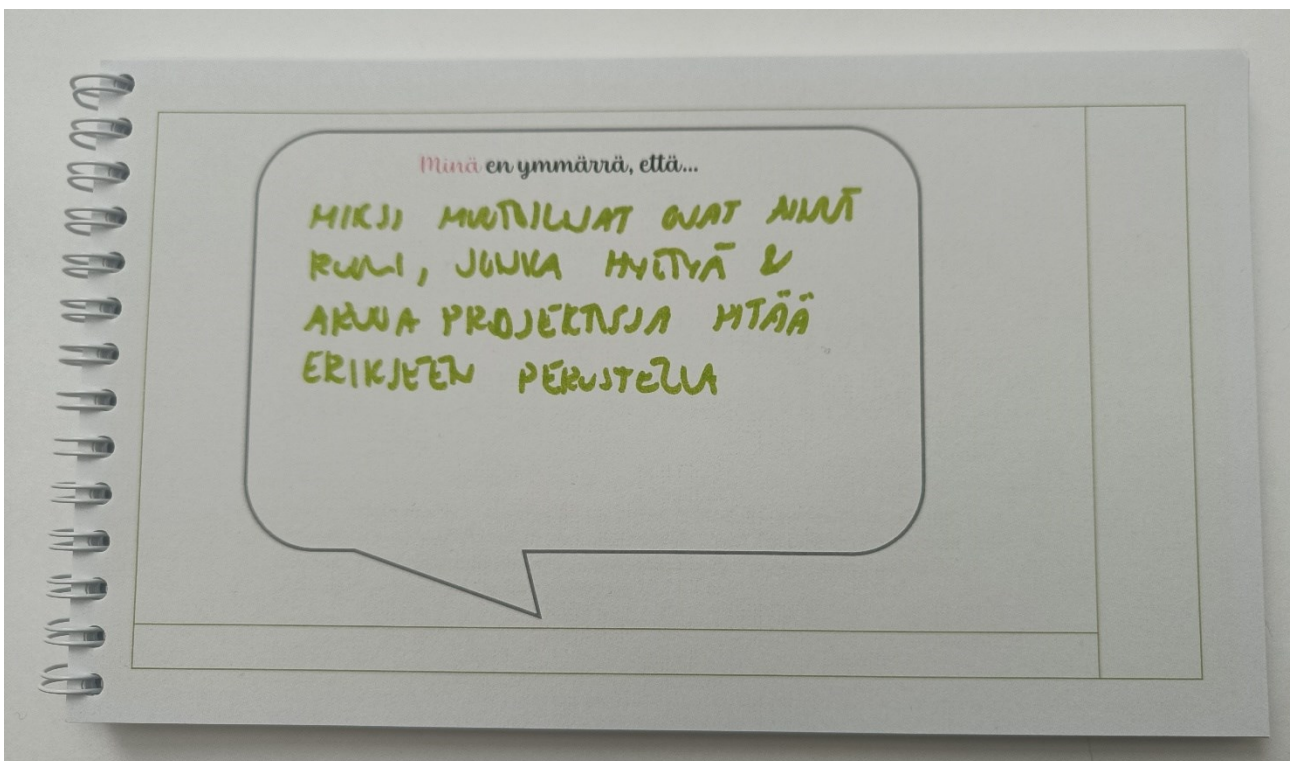 Minä en ymmärrä, että...
MIKSI MUOTOILIJAT OVAT AINUT
RYHMÄ, JONKA HYÖTYÄ &
ARVOA PROJEKTISSA PITÄÄ
ERIKSEEN PERUSTELLA